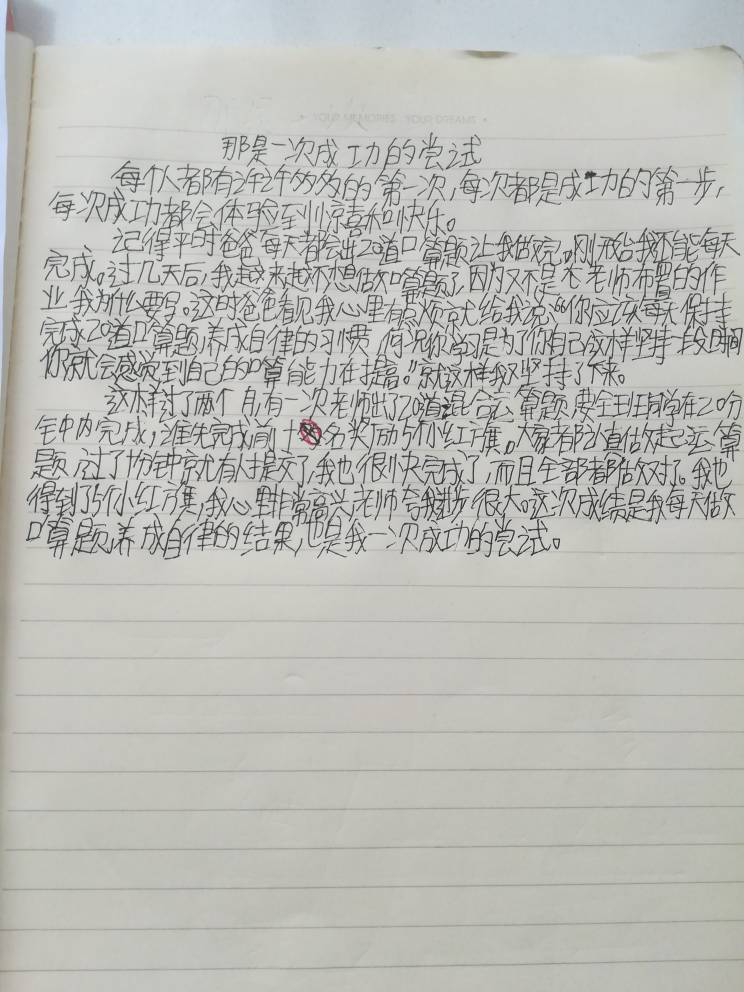 YOUR MEMORIES YOUR DREAMS
那是一次成功的尝试
每个人都有许许多多的第一次,每次都是成功的第一步,
每次成功都会体验到惊喜和快乐。
记得平时爸爸每天都会出20道口算题让我做完。刚开始我不能每天
完成。过几天后,我越来越不想做口算题了,因为又不是老师布置的作
业,我为什么要写。这时爸爸看见我心里有点烦就给我说:“你应该每天保持
完成20道口算题,养成自律的习惯,何况你学习是为了你自己这样坚持一段时间
你就会感觉到自己的口算能力在提高。”就这样我又坚持了下来。
这样过了两个月,有一次老师出了20道混合运算题,要全班同学在20分
钟内完成,谁先完成前十名奖励5个小红旗。大家都认真做起运算
题,过了十分钟就有人提交了,我也很快完成了,而且全部都做对了。我也
得到了5个小红旗,我心里非常高兴,老师夸我进步很大。这次成绩是我每天做
口算题,养成自律的结果,也是我一次成功的尝试。